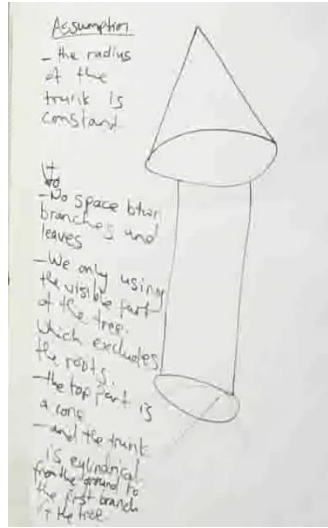 Assumption
- the radius
of the
trunk is
constant
- No space btwn
branches and
leaves
- We only using
the visible part
of the tree.
Which excludes
the roots.
- the top part is
a cone
- and the trunk
is cylindrical
from the ground to
the first branch
the tree